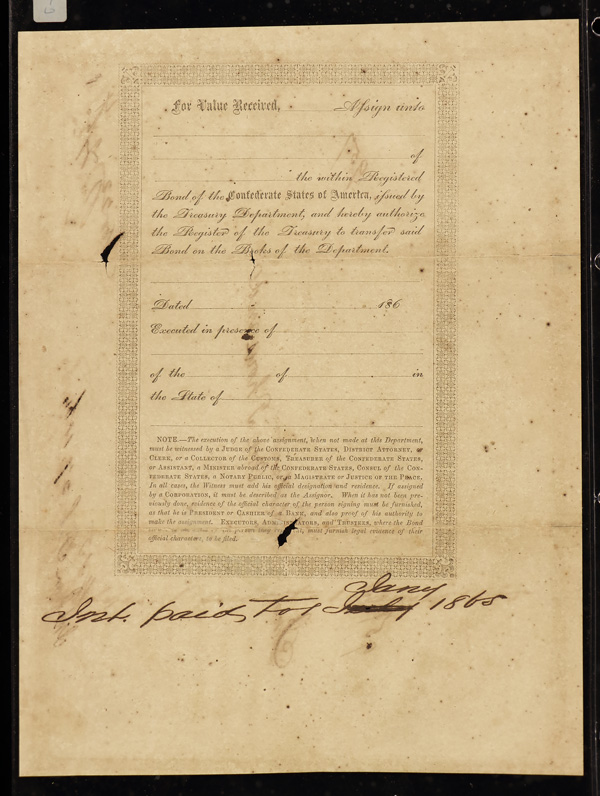 For Value Received, Assign unto
of
the within Registered
Bond of the Confederate States of America, issued by
the Treasury Department, and hereby authorize
the Register of the Treasury to transfer said
Bond on the Books of the Department.
Dated 186
Executed in presence of
of the of in
the State of
NOTE.—The execution of the above assignment, when not made at this Department,
must be witnessed by a Judge of the Confederate States, District Attorney, or
Clerk, or a Collector of the Customs, Treasurer of the Confederate States,
or Assistant, a Minister abroad of the Confederate States, Consul of the Con-
federate States, a Notary Public, or a Magistrate or Justice of the Peace.
In all cases, the Witness must add his official designation and residence. If assigned
by a Corporation, it must be described as the Assignor. When it has not been pre-
viously done, evidence of the official character of the person signing must be furnished,
as that he is President or Cashier of a Bank, and also proof of his authority to
make the assignment. Executors, Administrators, and Trustees, where the Bond
must furnish legal evidence of their
official character, to be filed.
Jany
Int. paid to 1 July 1865